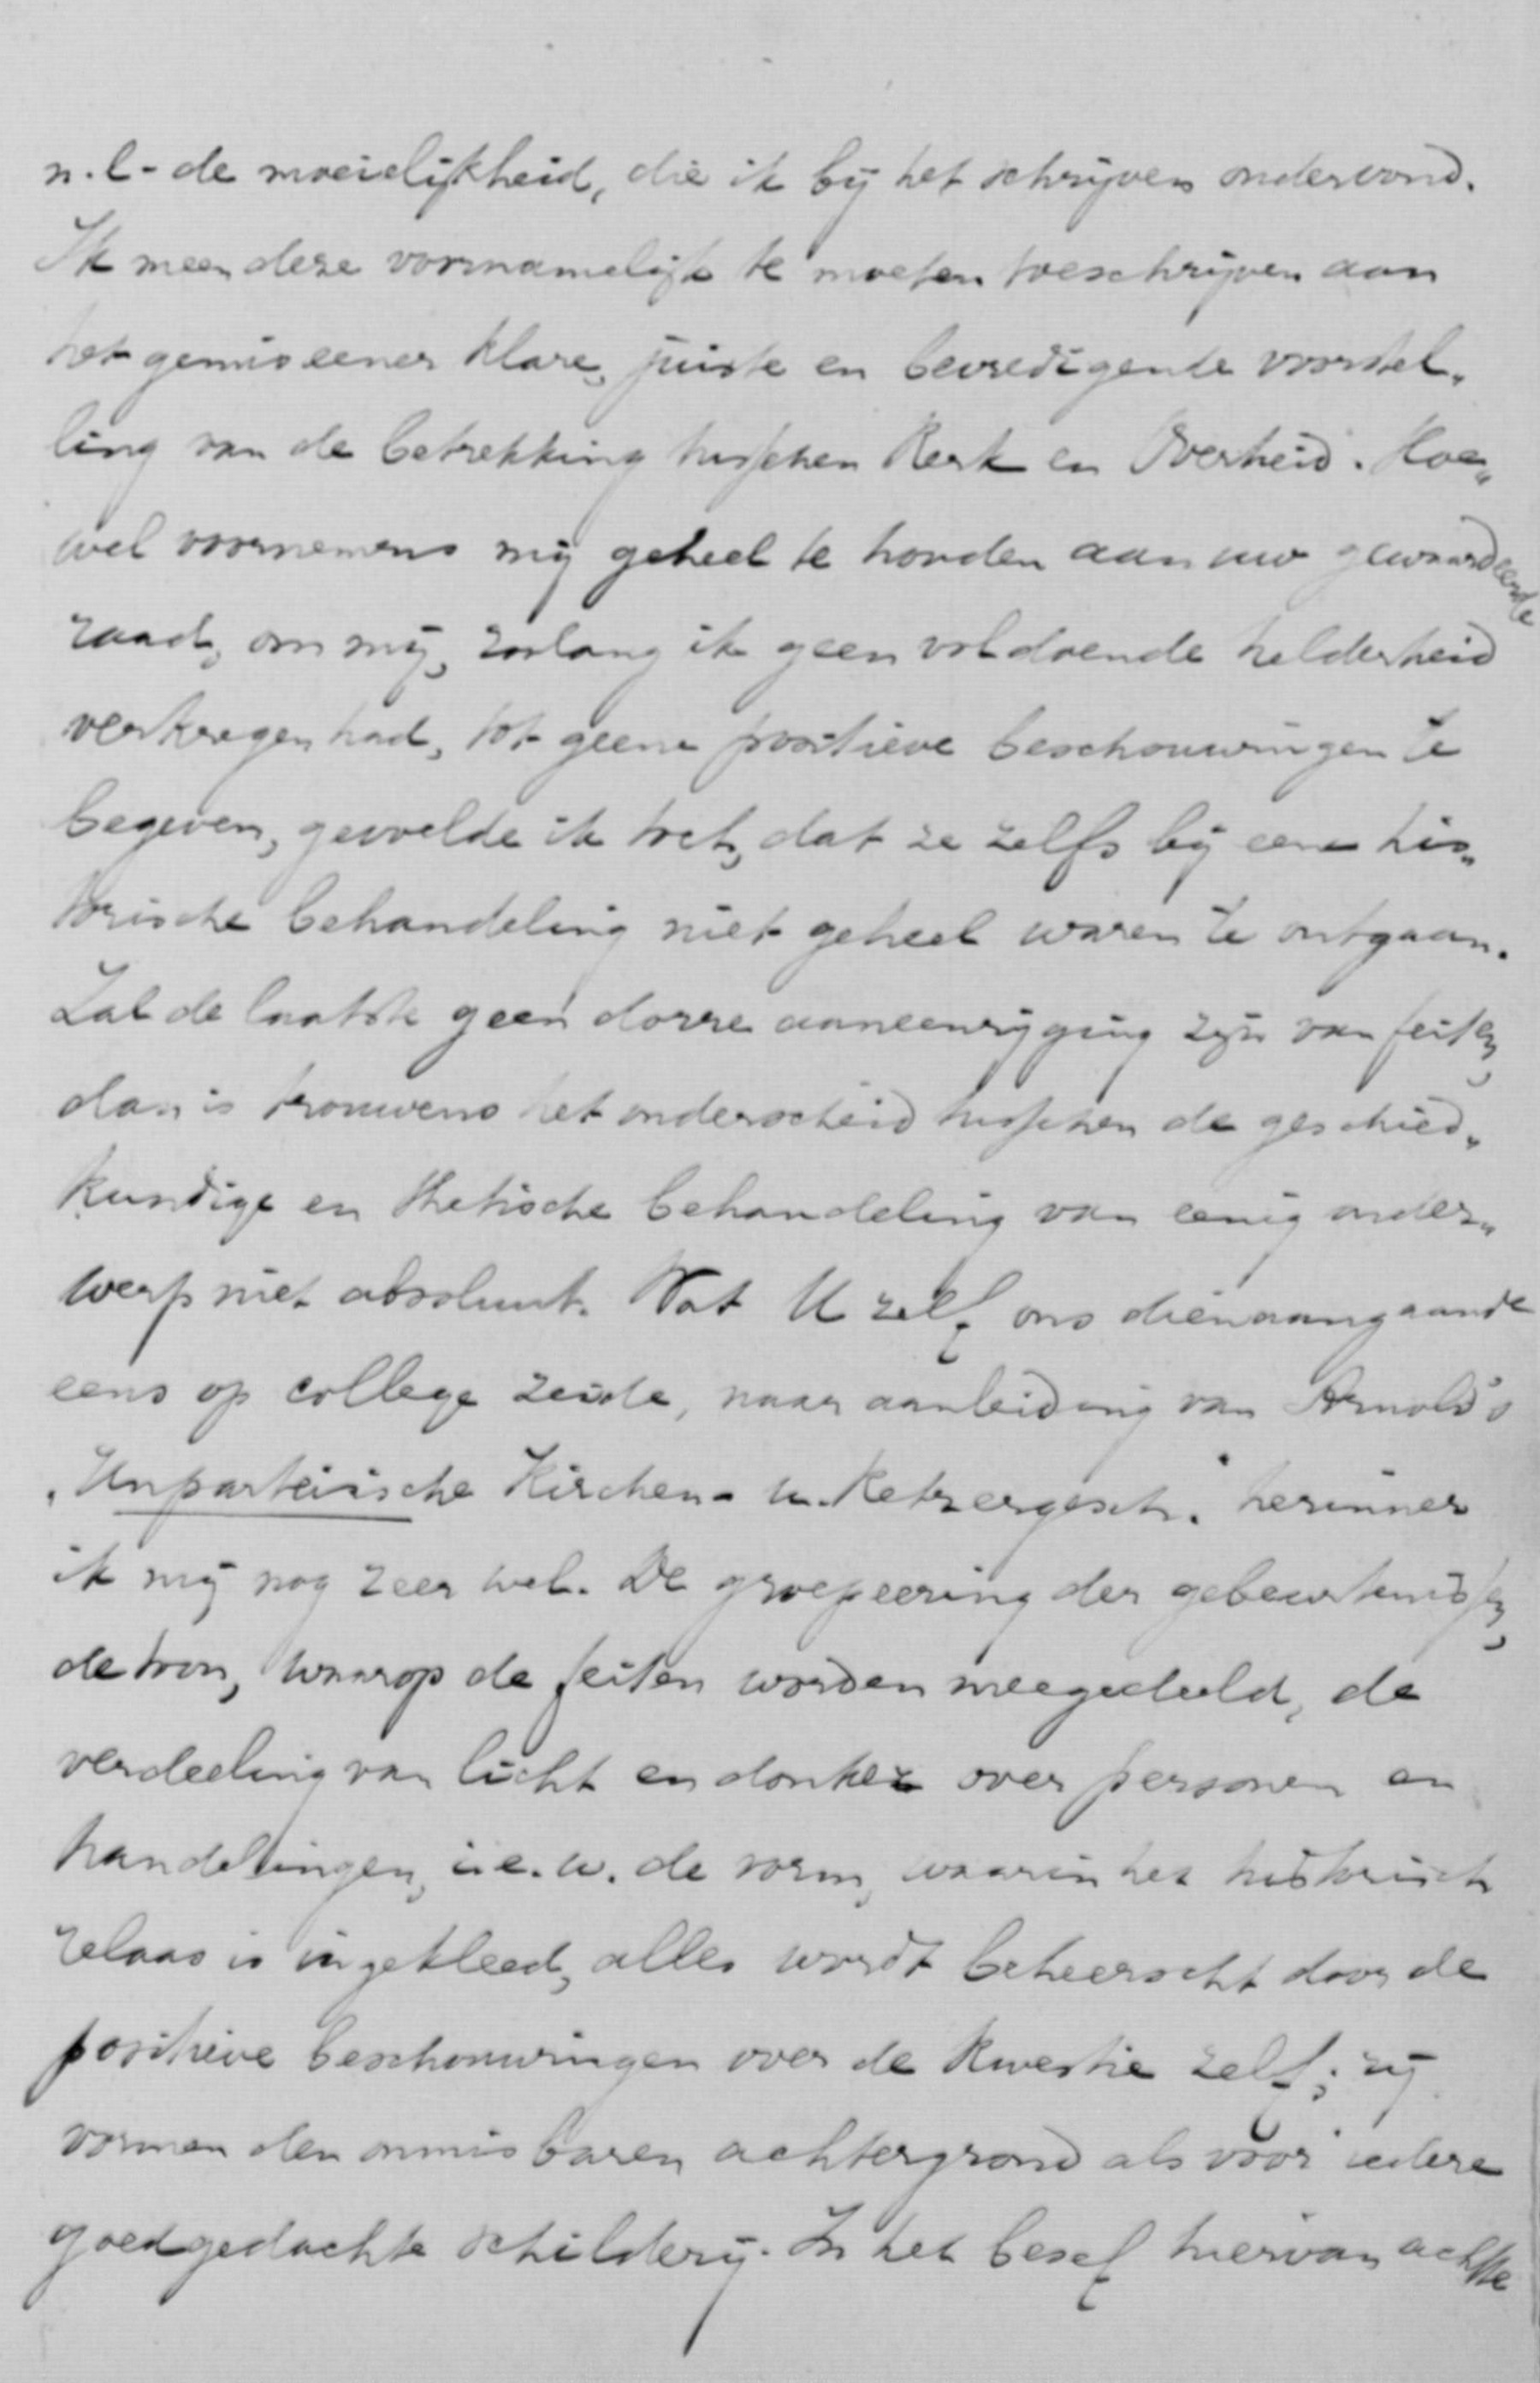 n.l. de moeielijkheid, die ik bij het schrijven ondervond.
Ik meen deze voornamelijk te moeten toeschrijven aan
het gemis eener klare, juiste en bevredigende voorstel„
ling van de betrekking tusschen Kerk en Overheid. Hoe„
wel voornemens mij geheel te houden aan uw gewaardeerde
raad, om mij, zoolang ik geen voldoende helderheid
verkregen had, tot geene positieve beschouwingen te
begeven, gevoelde ik toch, dat ze zelfs bij eene his„
torische behandeling niet geheel waren te ontgaan.
Zal de laatste geen dorre aaneenrijging zijn van feiten,
dan is trouwens het onderscheid tusschen de geschied„
kundige en thetische behandeling van eenig onder„
werp niet absoluut. Wat U zelf ons dienaangaande
eens op college zeide, naar aanleiding van Arnold's
„Unparteiische Kirchen- u. Ketzergesch." herinner
ik mij nog zeer wel. De groepeering der gebeurtenissen,
de toon, waarop de feiten worden meegedeeld, de
verdeeling van licht en donker over personen en
handelingen, i.e.w. de vorm, waarin het historisch
relaas is ingekleed, alles wordt beheerscht door de
positieve beschouwingen over de kwestie zelf; zij
vormen den onmisbaren achtergrond als voor iedere
goedgedachte schilderij. In het besef hiervan achtte